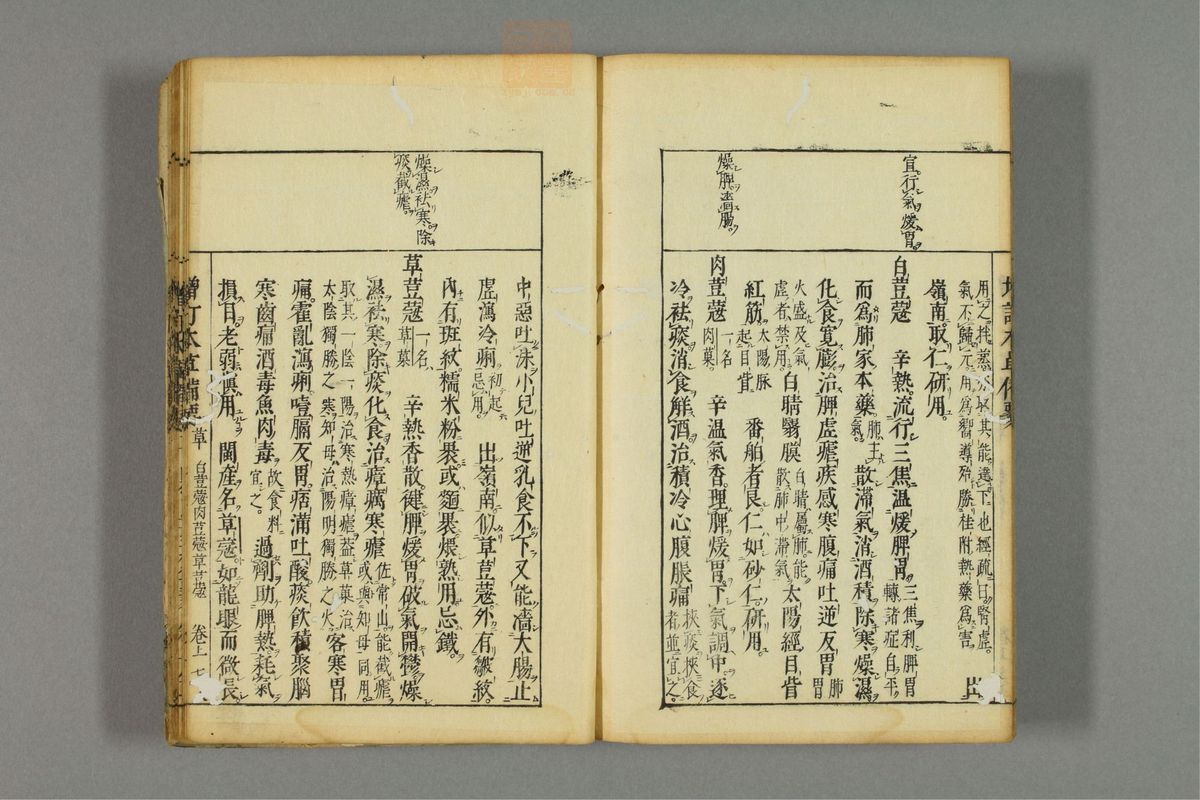 用之拌蒸
其能達下也經疏曰腎虛
氣不歸元用為嚮導殆勝桂附熱藥為害
嶺南取仁研用
宜行氣煖胃
白荳蔻 辛熱流行三焦溫煖脾胃三焦利脾胃轉諸症自平
而為肺家本藥肺主氣散滯氣消酒積除寒燥濕
化食寬膨治脾虛瘧疾感寒腹痛吐逆反胃肺胃
火盛及氣虛者禁用白睛翳膜白睛屬肺能散肺中滯氣太陽經目眥
紅筋太陽脉起目眥 番舶者良仁如砂仁研用
燥脾濇腸
肉荳蔻一名肉菓 辛溫氣香理脾煖胃下氣調中逐
冷祛痰消食解酒治積冷心腹脹痛挾痰挾食者並宜之
中惡吐沫小兒吐逆乳食不下又能濇大腸止
虛瀉冷痢初起忌用 出嶺南似草荳蔻外有皺紋
內有斑紋糯米粉裹或麵裹煨熟用忌鐵
燥濕袪寒除
痰截瘧
草荳蔻一名草菓 辛熱香散健脾煖胃破氣開鬱燥
濕祛寒除痰化食治瘴癘寒瘧佐常山能截瘧或與知母同用
取其一陰一陽治寒熱瘴瘧蓋草菓治太陰獨勝之寒知母治陽明獨勝之火客寒胃
痛霍亂瀉痢噎膈反胃痞滿吐酸痰飲積聚腦
寒齒痛酒毒魚肉毒故食料宜之 過劑助脾熱耗氣
損目老弱慎用 閩產名草蔻如龍眼而微長
增訂本草備要
草 白荳蔻肉荳蔻草荳蔻 卷上